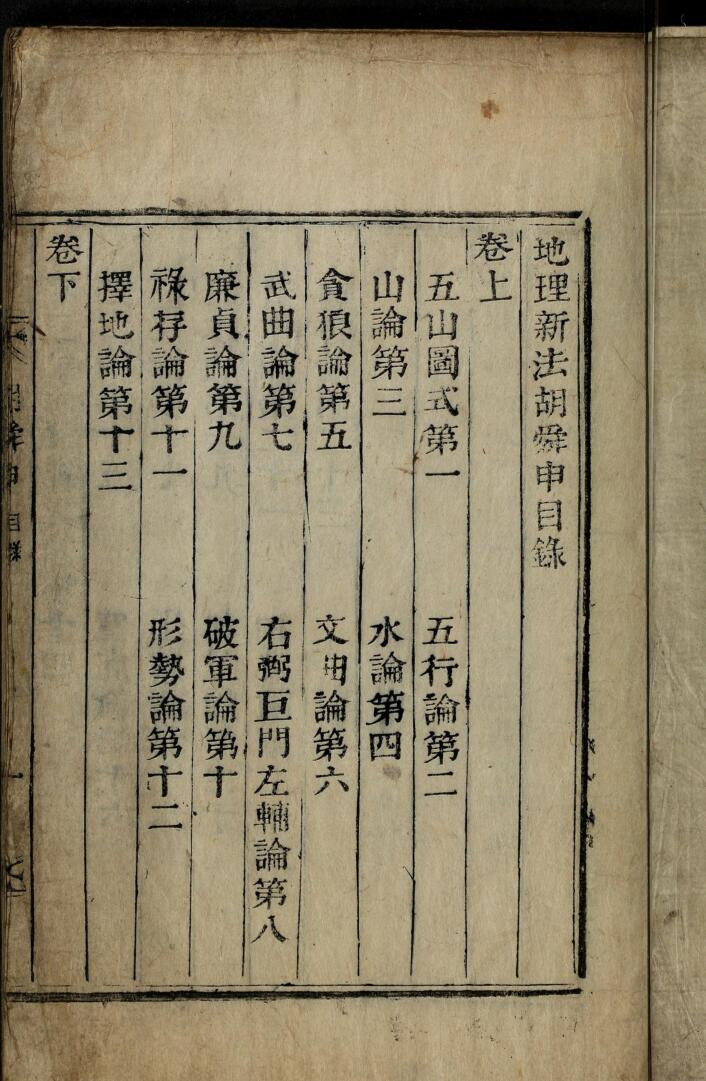 地理新法胡舜申目錄
卷上
五山圖式第一 五行論第二
山論第三 水論第四
貪狼論第五 文曲論第六
武曲論第七 右弼巨門左輔論第八
廉貞論第九 破軍論第十
祿存論第十一 形勢論第十二
擇地論第十三
卷下
胡舜申目錄 一